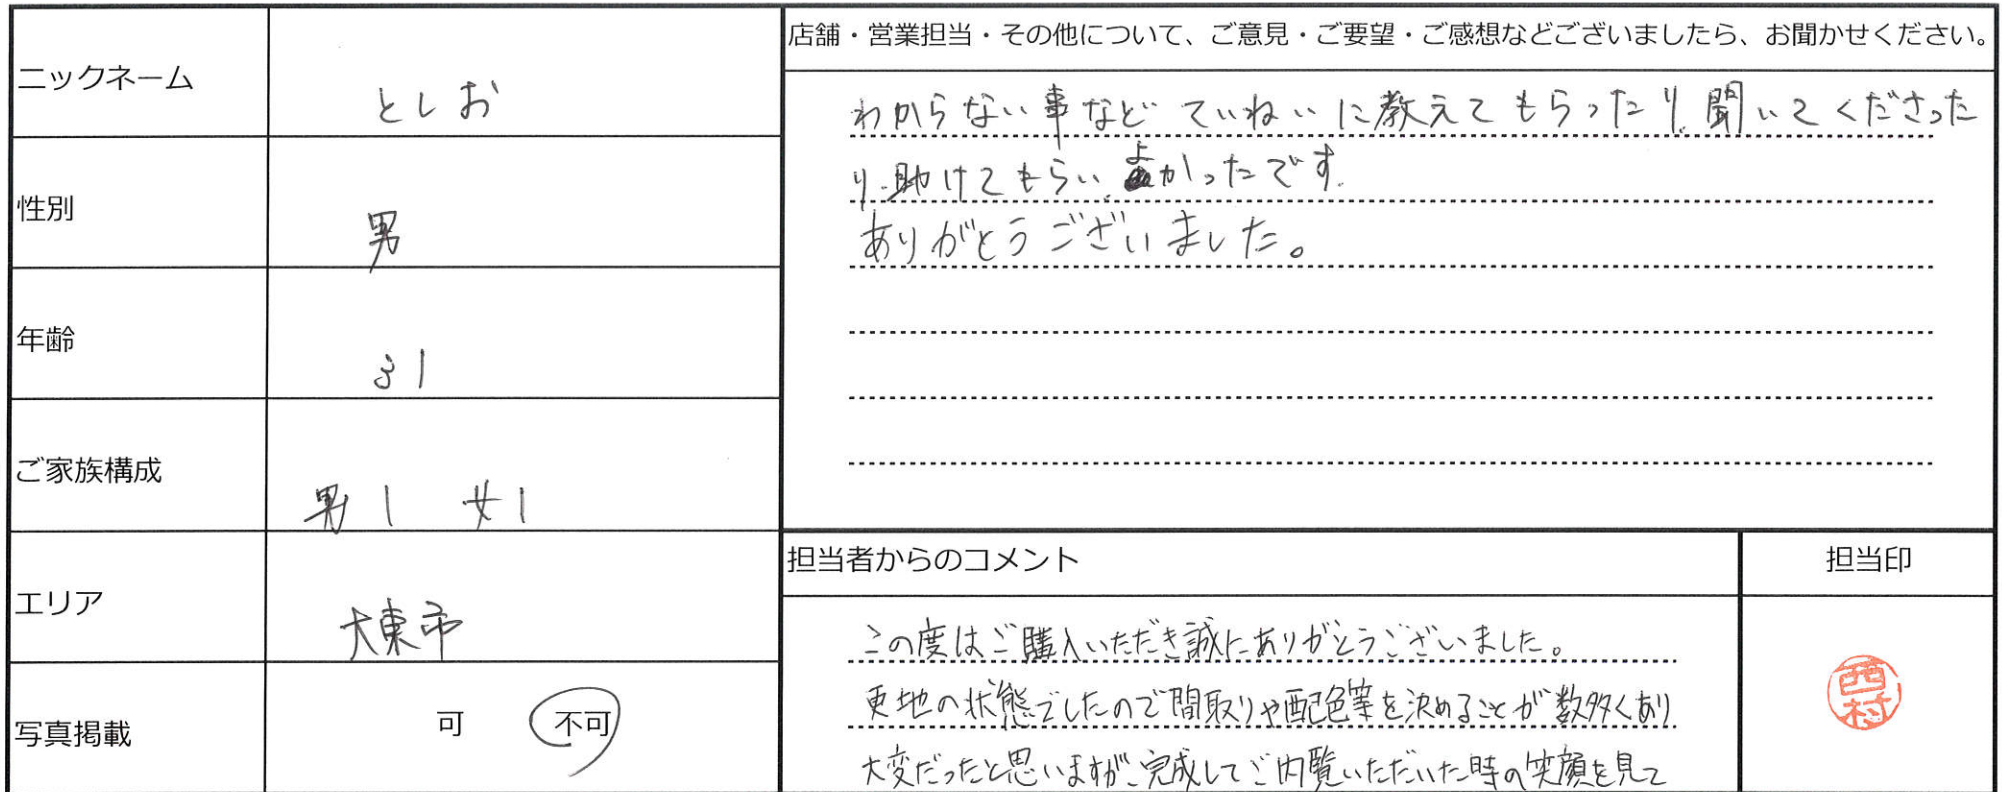 ニックネーム
としお
性別
男
年齢
31
ご家族構成
男1 女1
エリア
大東市
写真掲載
可 不可
店舗・営業担当・その他について、ご意見・ご要望・ご感想などございましたら、お聞かせください。
わからない事など ていねいに教えてもらったり、聞いてくださった
り、助けてもらい、よかったです。
ありがとうございました。
担当者からのコメント
この度はご購入いただき誠にありがとうございました。
更地の状態でしたので間取りや配色等を決めることが数多くあり
大変だったと思いますが、完成してご内覧いただいた時の笑顔を見て
担当印
西村